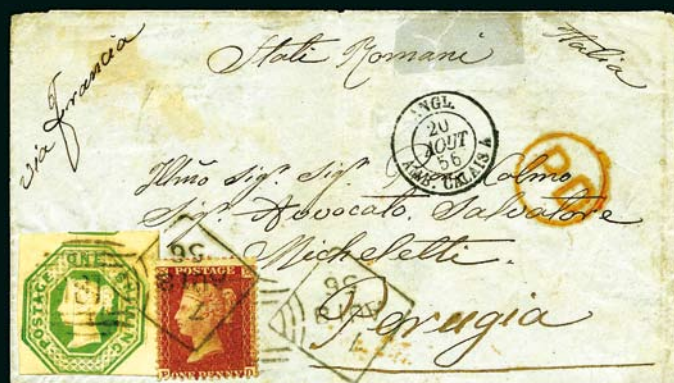 via Francia
Stati Romani
Italia
ANGL.
20
AOUT
56
AMB. CALAIS A
P.D.
Illmo Sigr. Sigr. Colmo
Sigr. Avvocato. Salvatore
Micheletti.
Perugia
POSTAGE ONE SHILLING
POSTAGE
ONE PENNY
P D
56
7
56
7